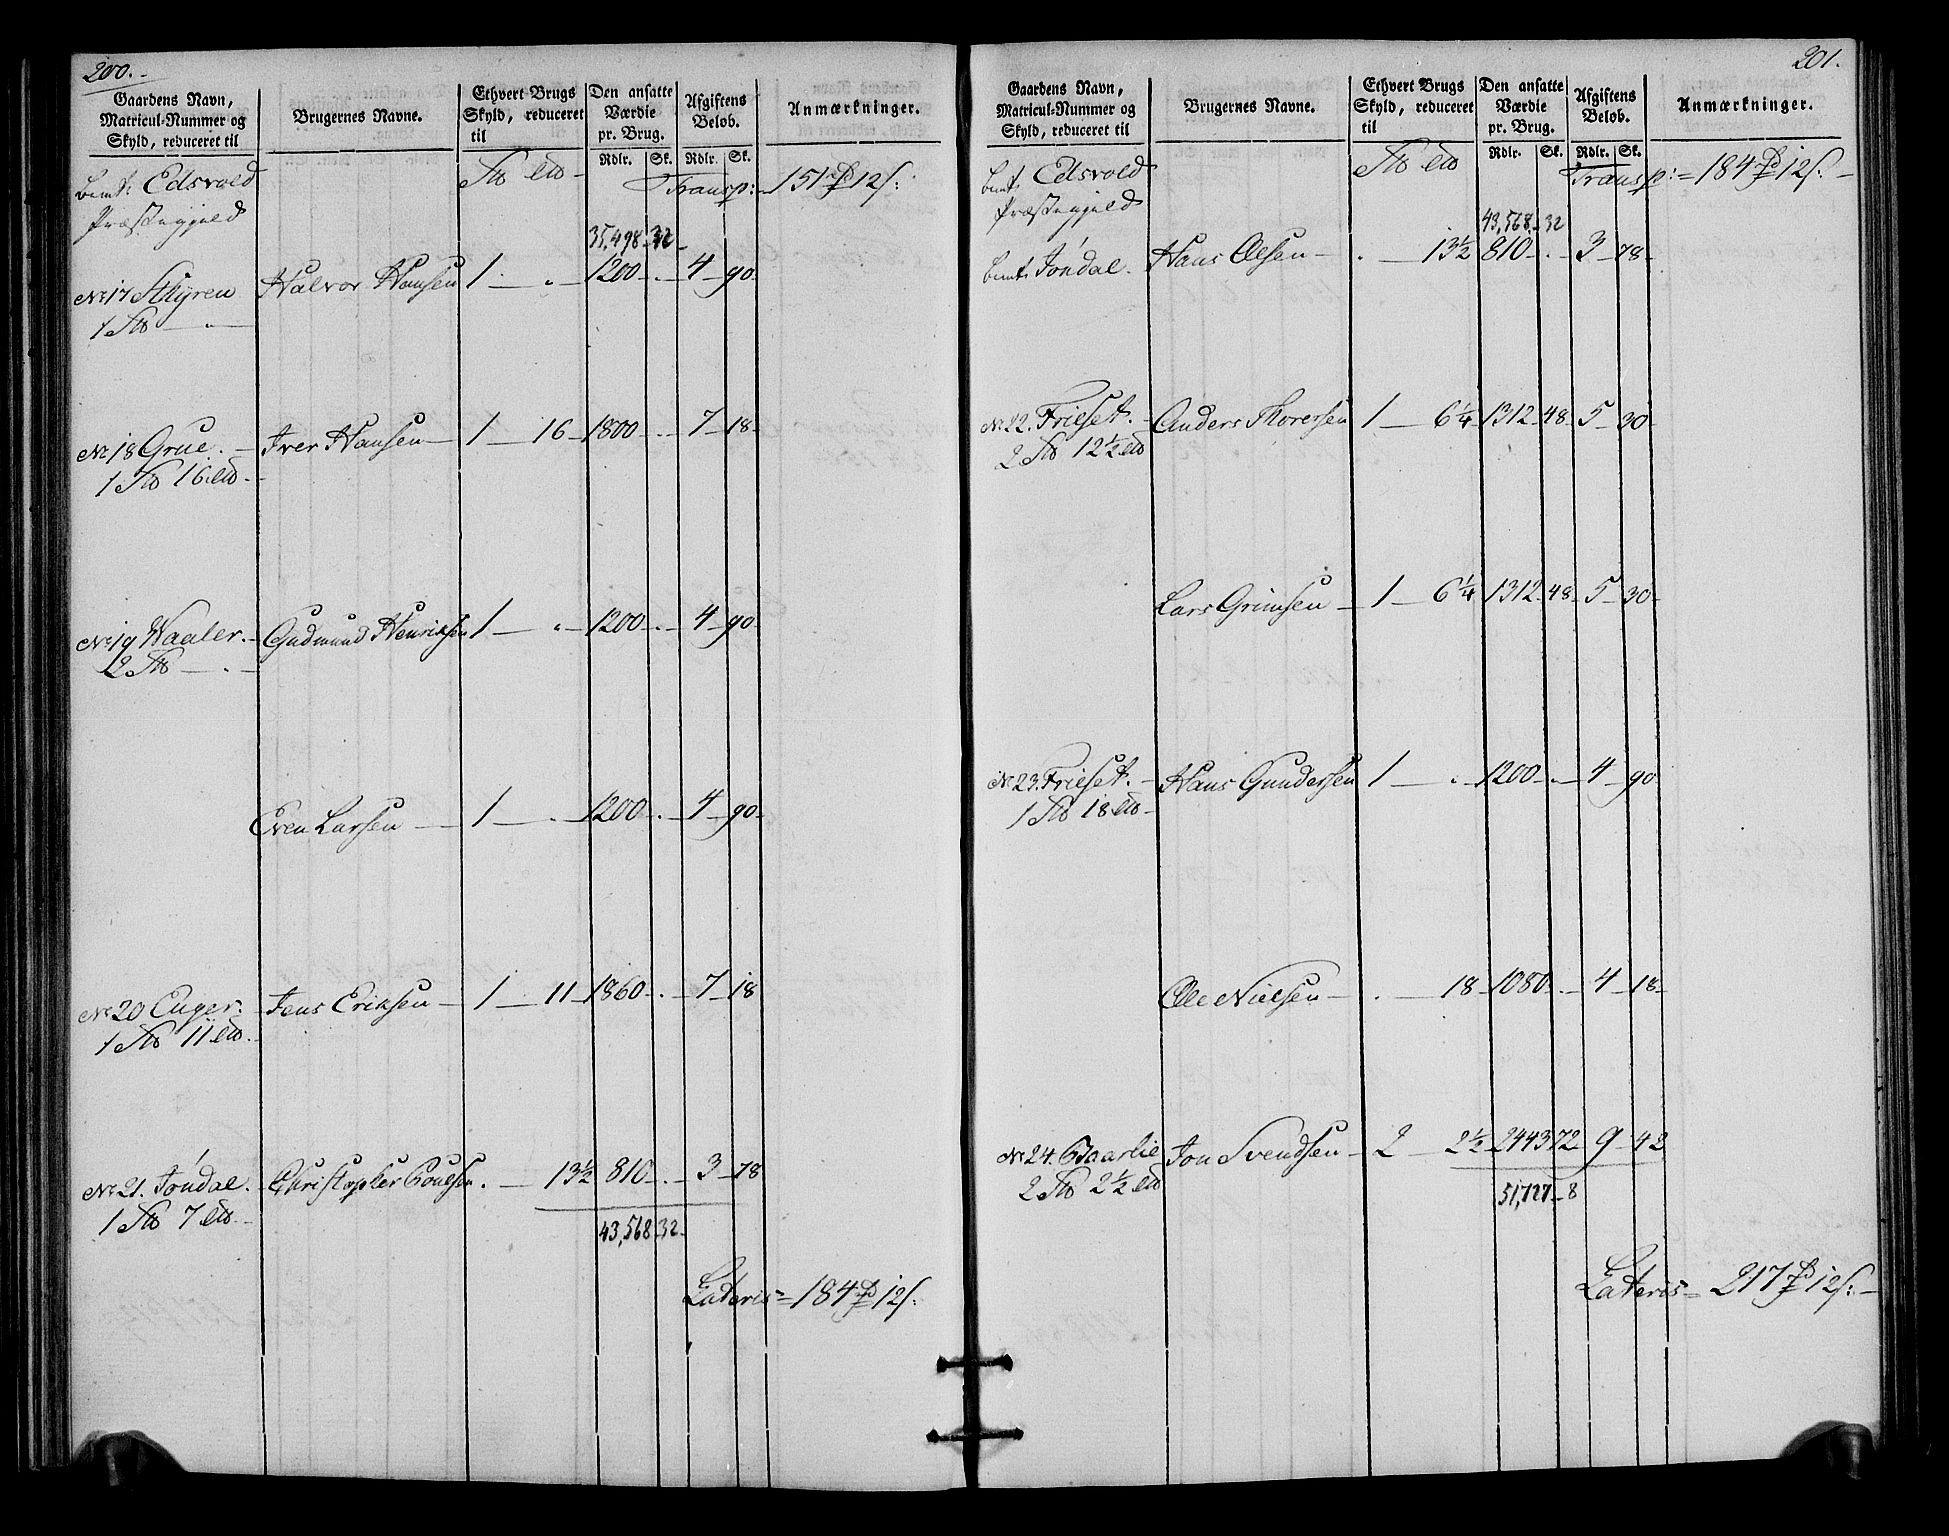 200.-
Gaardens Navn,
Matricul-Nummer og
Skyld, reduceret til
Brugernes Navne.
Ethvert Brugs
Skyld, reduceret
til
Den ansatte
Værdie
pr. Brug.
Afgiftens
Beløb.
Anmærkninger.
Rdlr. Sk. Rdlr. Sk.
bemt: Edsvold
Præstegjeld
Transp: 151 12 s:
35,498 32
No 17 Styren Halvor Hansen 1 - " - 1200 - . - 4 - 90
1
No 18 Grue. Iver Hansen 1 - 16 - 1800 - . - 7 - 18
1 16
No 19 Waaler. Gudmund Henriksen 1 - " - 1200 - . - 4 - 90
2
Even Larsen 1 - . - 1200 - . - 4 - 90
No 20 Enger: Jens Eriksen 1 - 11 - 1860 - . - 7 - 18
1 11
No 21. Jøndal. Christopher Poulsen . - 13½ 810 - . - 3 - 78
1 7
43,568 32
Lateris = 184 12 s:
201.
Gaardens Navn,
Matricul-Nummer og
Skyld, reduceret til
Brugernes Navne.
Ethvert Brugs
Skyld, reduceret
til
Den ansatte
Værdie
pr. Brug.
Afgiftens
Beløb.
Anmærkninger.
Rdlr. Sk. Rdlr. Sk.
bemt: Edsvold
Præstegjeld
Transp: = 184 12 s: -
43,568 32
bemt: Jøndal. Hans Olsen - . - 13½ 810 - . - 3 - 78
No 22. Frieset. Anders Thorersen 1 - 6¼ 1312 - 48 - 5 - 30
2 12½
Lars Grimsen 1 - 6¼ 1312 - 48 - 5 - 30
No 23. Frieset. Hans Gundersen 1 - . - 1200 - . - 4 - 90
1 18
Ole Nielsen . - 18 - 1080 - . - 4 - 18
No 24. Baarlie Jon Svendsen 2 - 2½ 2443 72 9 - 42
2 2½
51,727 - 8
Lateris = 217 12 s: -